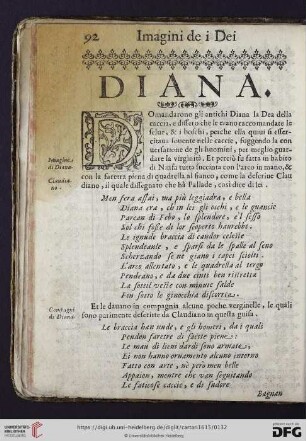 92 Imagini de i Dei
DIANA.
Omandarono gli antichi Diana la Dea della
caccia, e dissero che le erano raccomandate le
selue, & i boschi, perche ella quiui si esser-
citaua souente nelle caccie, fuggendo la con
uersatione de gli huomini, per meglio guar-
dare la virginità. Et perciò fu fatta in habito
di Ninfa tutta succinta con l'arco in mano, &
con la faretra piena di quadrella al fianco, come la descriue Clau
diano, il quale dissegnato che hà Pallade, così dice di lei.
Imagine
di Diana.
Claudia-
no.
Men fera assai, ma più leggiadra, e bella
Diana era, ch'in lei gli occhi, e le guancie
Parean di Febo, lo splendore, e'l sesso
Sol chi fosse di lor scoperto haurebbe.
Le ignude braccia di candor celeste
Splendeante, e sparsi da le spalle al seno
Scherzando se ne giano i capei sciolti.
L'arco allentato, e le quadrella al tergo
Pendeano, e da due cinti ben ristretta
La sottil veste con minute falde
Fin sotto le ginocchia discorrea.
Et le dauano in compagnia alcune poche verginelle, le quali
sono parimente descritte da Claudiano in questa guisa.
Compagne
di Diana.
Le braccia han nude, e gli homeri, da i quali
Pendon faretre di saette piene:
Le man di lieui dardi sono armate,
Et non hanno ornamento alcuno intorno
Fatto con arte, nò però men belle
Appaion, mentre che van seguendo
Le faticose caccie, e di sudore
Bagnan
UNIVERSITÄTS-
BIBLIOTHEK
HEIDELBERG
https://digi.ub.uni-heidelberg.de/diglit/cartari1615/0132
© Universitätsbibliothek Heidelberg
gefördert durch
DFG